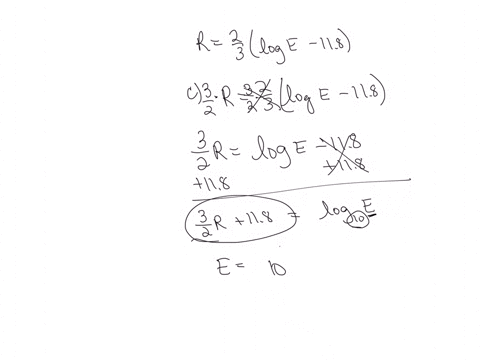 R = 2/3 (log E - 11.8)
c) 3/2 · R = 3/2 · 2/3 (log E - 11.8)
3/2 R = log E - 11.8
+11.8 +11.8
3/2 R + 11.8 = log₁₀ E
E = 10